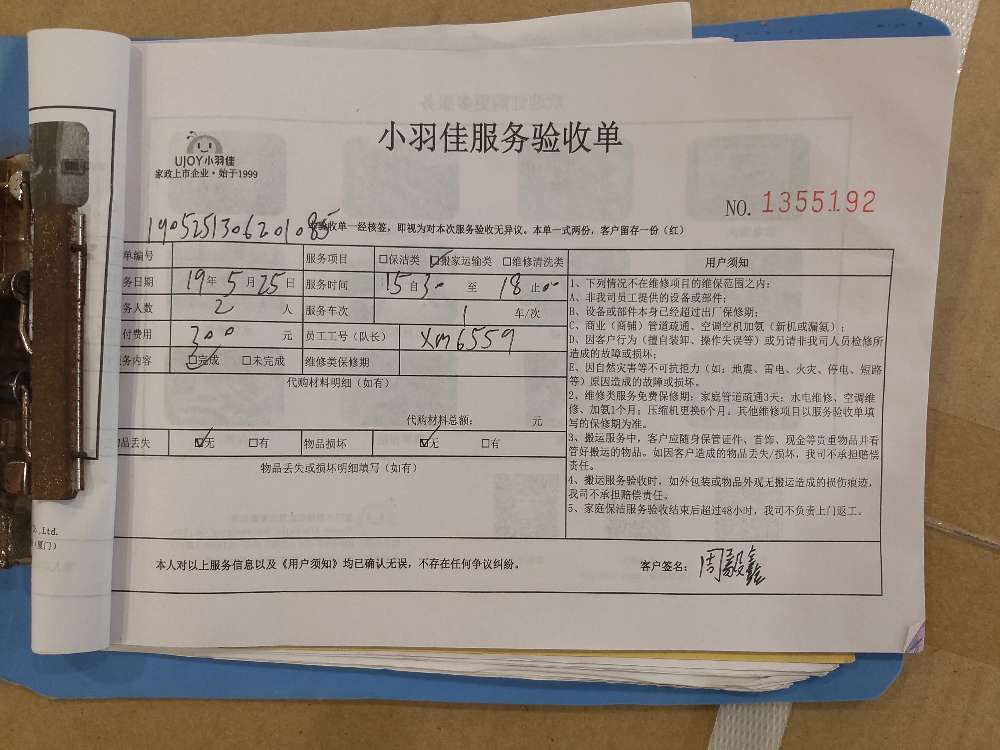 小羽佳服务验收单
UJOY小羽佳
家政上市企业·始于1999
NO. 1355192
190525130620108
验收单一经核签，即视为对本次服务验收无异议。本单一式两份，客户留存一份（红）
单编号 服务项目 □保洁类 ☑搬家运输类 □维修清洗类
务日期 19年5月25日 服务时间 15自30至18止00
务人数 2人 服务车次 1车/次
付费用 300元 员工工号（队长） xm6559
务内容 ☑完成 □未完成 维修类保修期
代购材料明细（如有）
代购材料总额： 元
物品丢失 ☑无 □有 物品损坏 ☑无 □有
物品丢失或损坏明细填写（如有）
用户须知
1、下列情况不在维修项目的维保范围之内：
A、非我司员工提供的设备或部件；
B、设备或部件本身已经超过出厂保修期；
C、商业（商铺）管道疏通、空调空机加氨（新机或漏氨）；
D、因客户行为（擅自装卸、操作失误等）或另请非我司人员检修所
造成的故障或损坏；
E、因自然灾害等不可抗拒力（如：地震、雷电、火灾、停电、短路
等）原因造成的故障或损坏。
2、维修类服务免费保修期：家庭管道疏通3天；水电维修、空调维
修、加氨1个月；压缩机更换6个月，其他维修项目以服务验收单填
写的保修期为准。
3、搬运服务中，客户应随身保管证件、首饰、现金等贵重物品并看
管好搬运的物品。如因客户造成的物品丢失/损坏，我司不承担赔偿
责任。
4、搬运服务验收时，如外包装或物品外观无搬运造成的损伤痕迹，
我司不承担赔偿责任。
5、家庭保洁服务验收结束后超过48小时，我司不负责上门返工。
本人对以上服务信息以及《用户须知》均已确认无误，不存在任何争议纠纷。
客户签名：周毅鑫
.,Ltd.
（厦门）